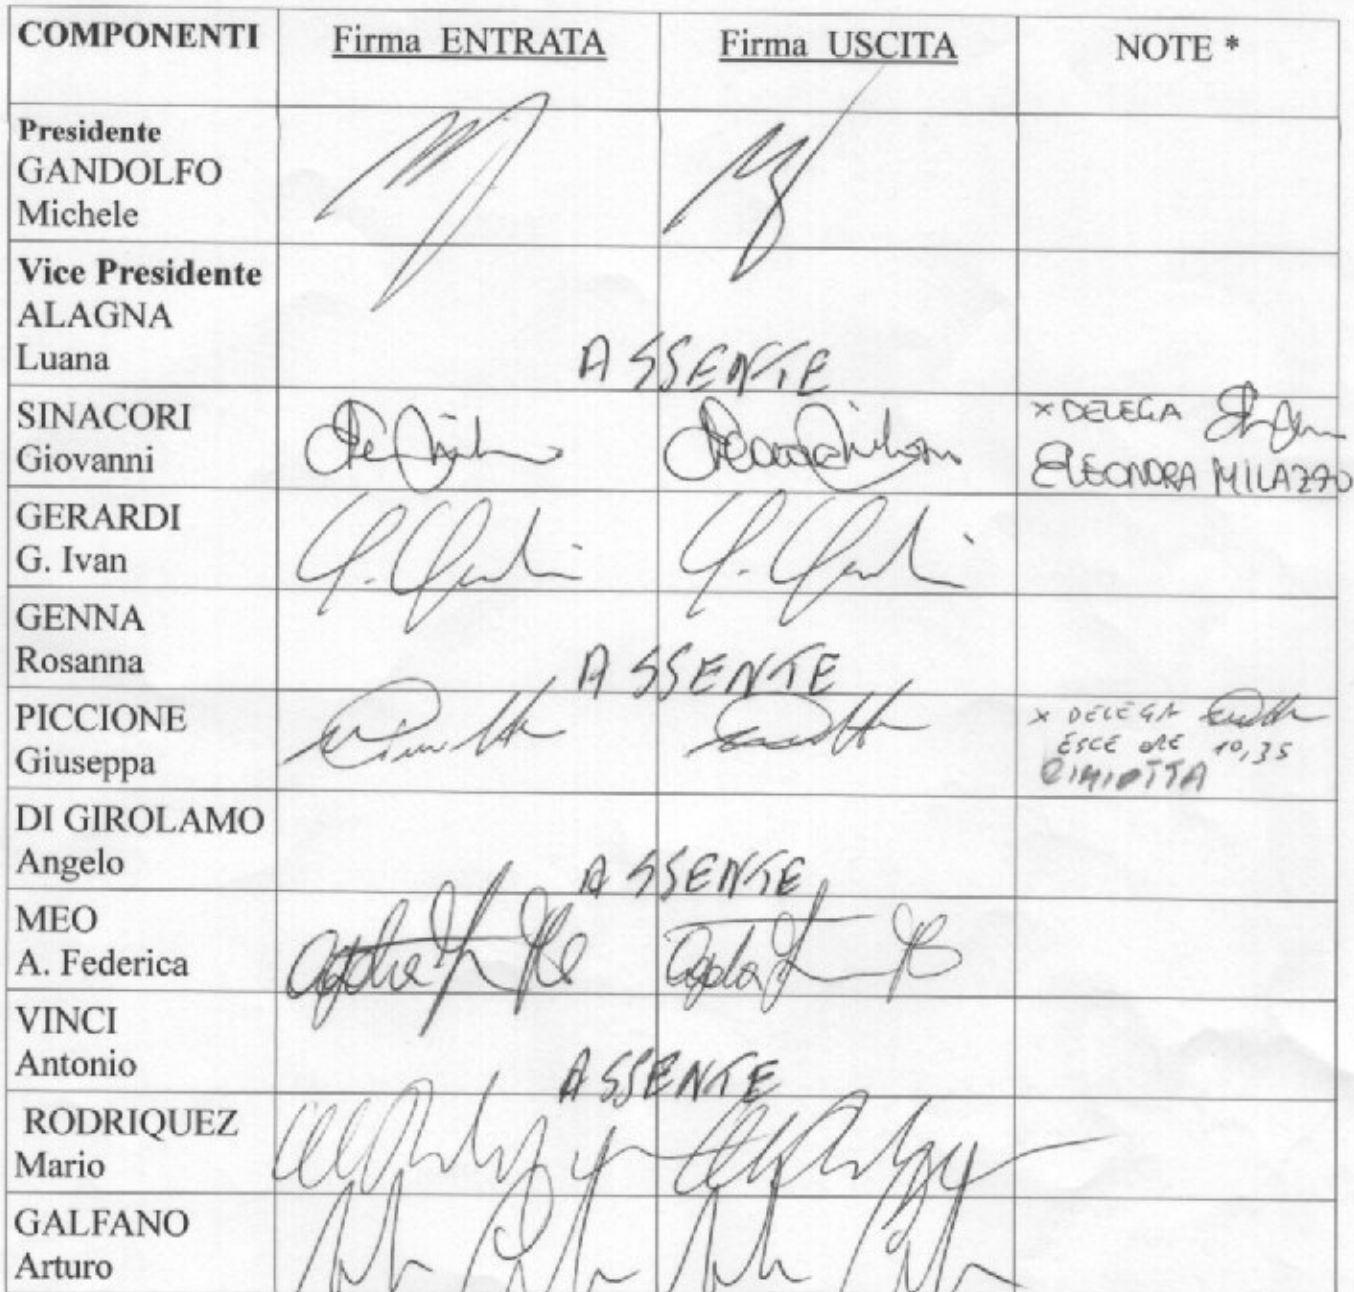 COMPONENTI Firma ENTRATA Firma USCITA NOTE *
Presidente
GANDOLFO
Michele
Vice Presidente
ALAGNA
Luana ASSENTE
SINACORI × DELEGA
Giovanni ELEONORA MILAZZO
GERARDI
G. Ivan
GENNA
Rosanna ASSENTE
PICCIONE × DELEGA
ESCE ORE 10,35
Giuseppa CIMIOTTA
DI GIROLAMO
Angelo ASSENTE
MEO
A. Federica
VINCI
Antonio ASSENTE
RODRIQUEZ
Mario
GALFANO
Arturo